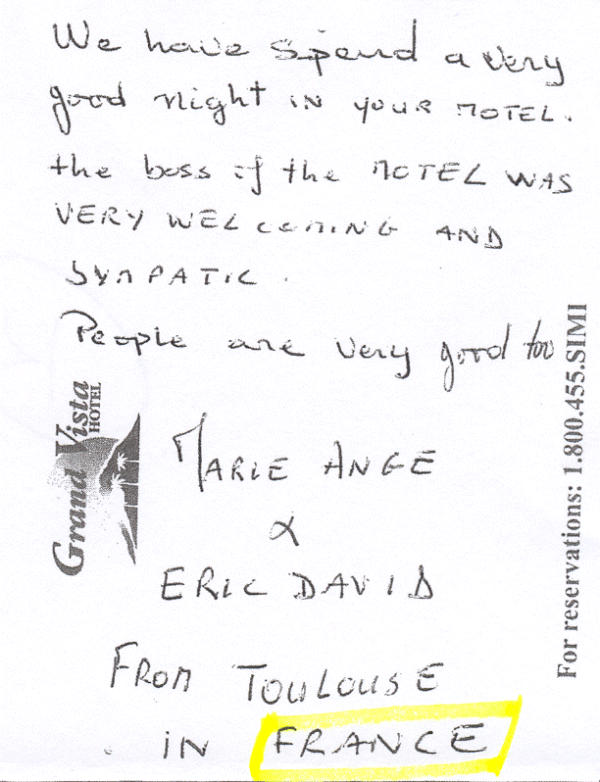 We have spend a very
good night in your MOTEL.
the boss of the MOTEL WAS
VERY WELCOMING AND
SYMPATIC.
People are very good too
MARIE ANGE
&
ERIC DAVID
FROM TOULOUSE
IN FRANCE
Grand Vista
HOTEL
For reservations: 1.800.455.SIMI